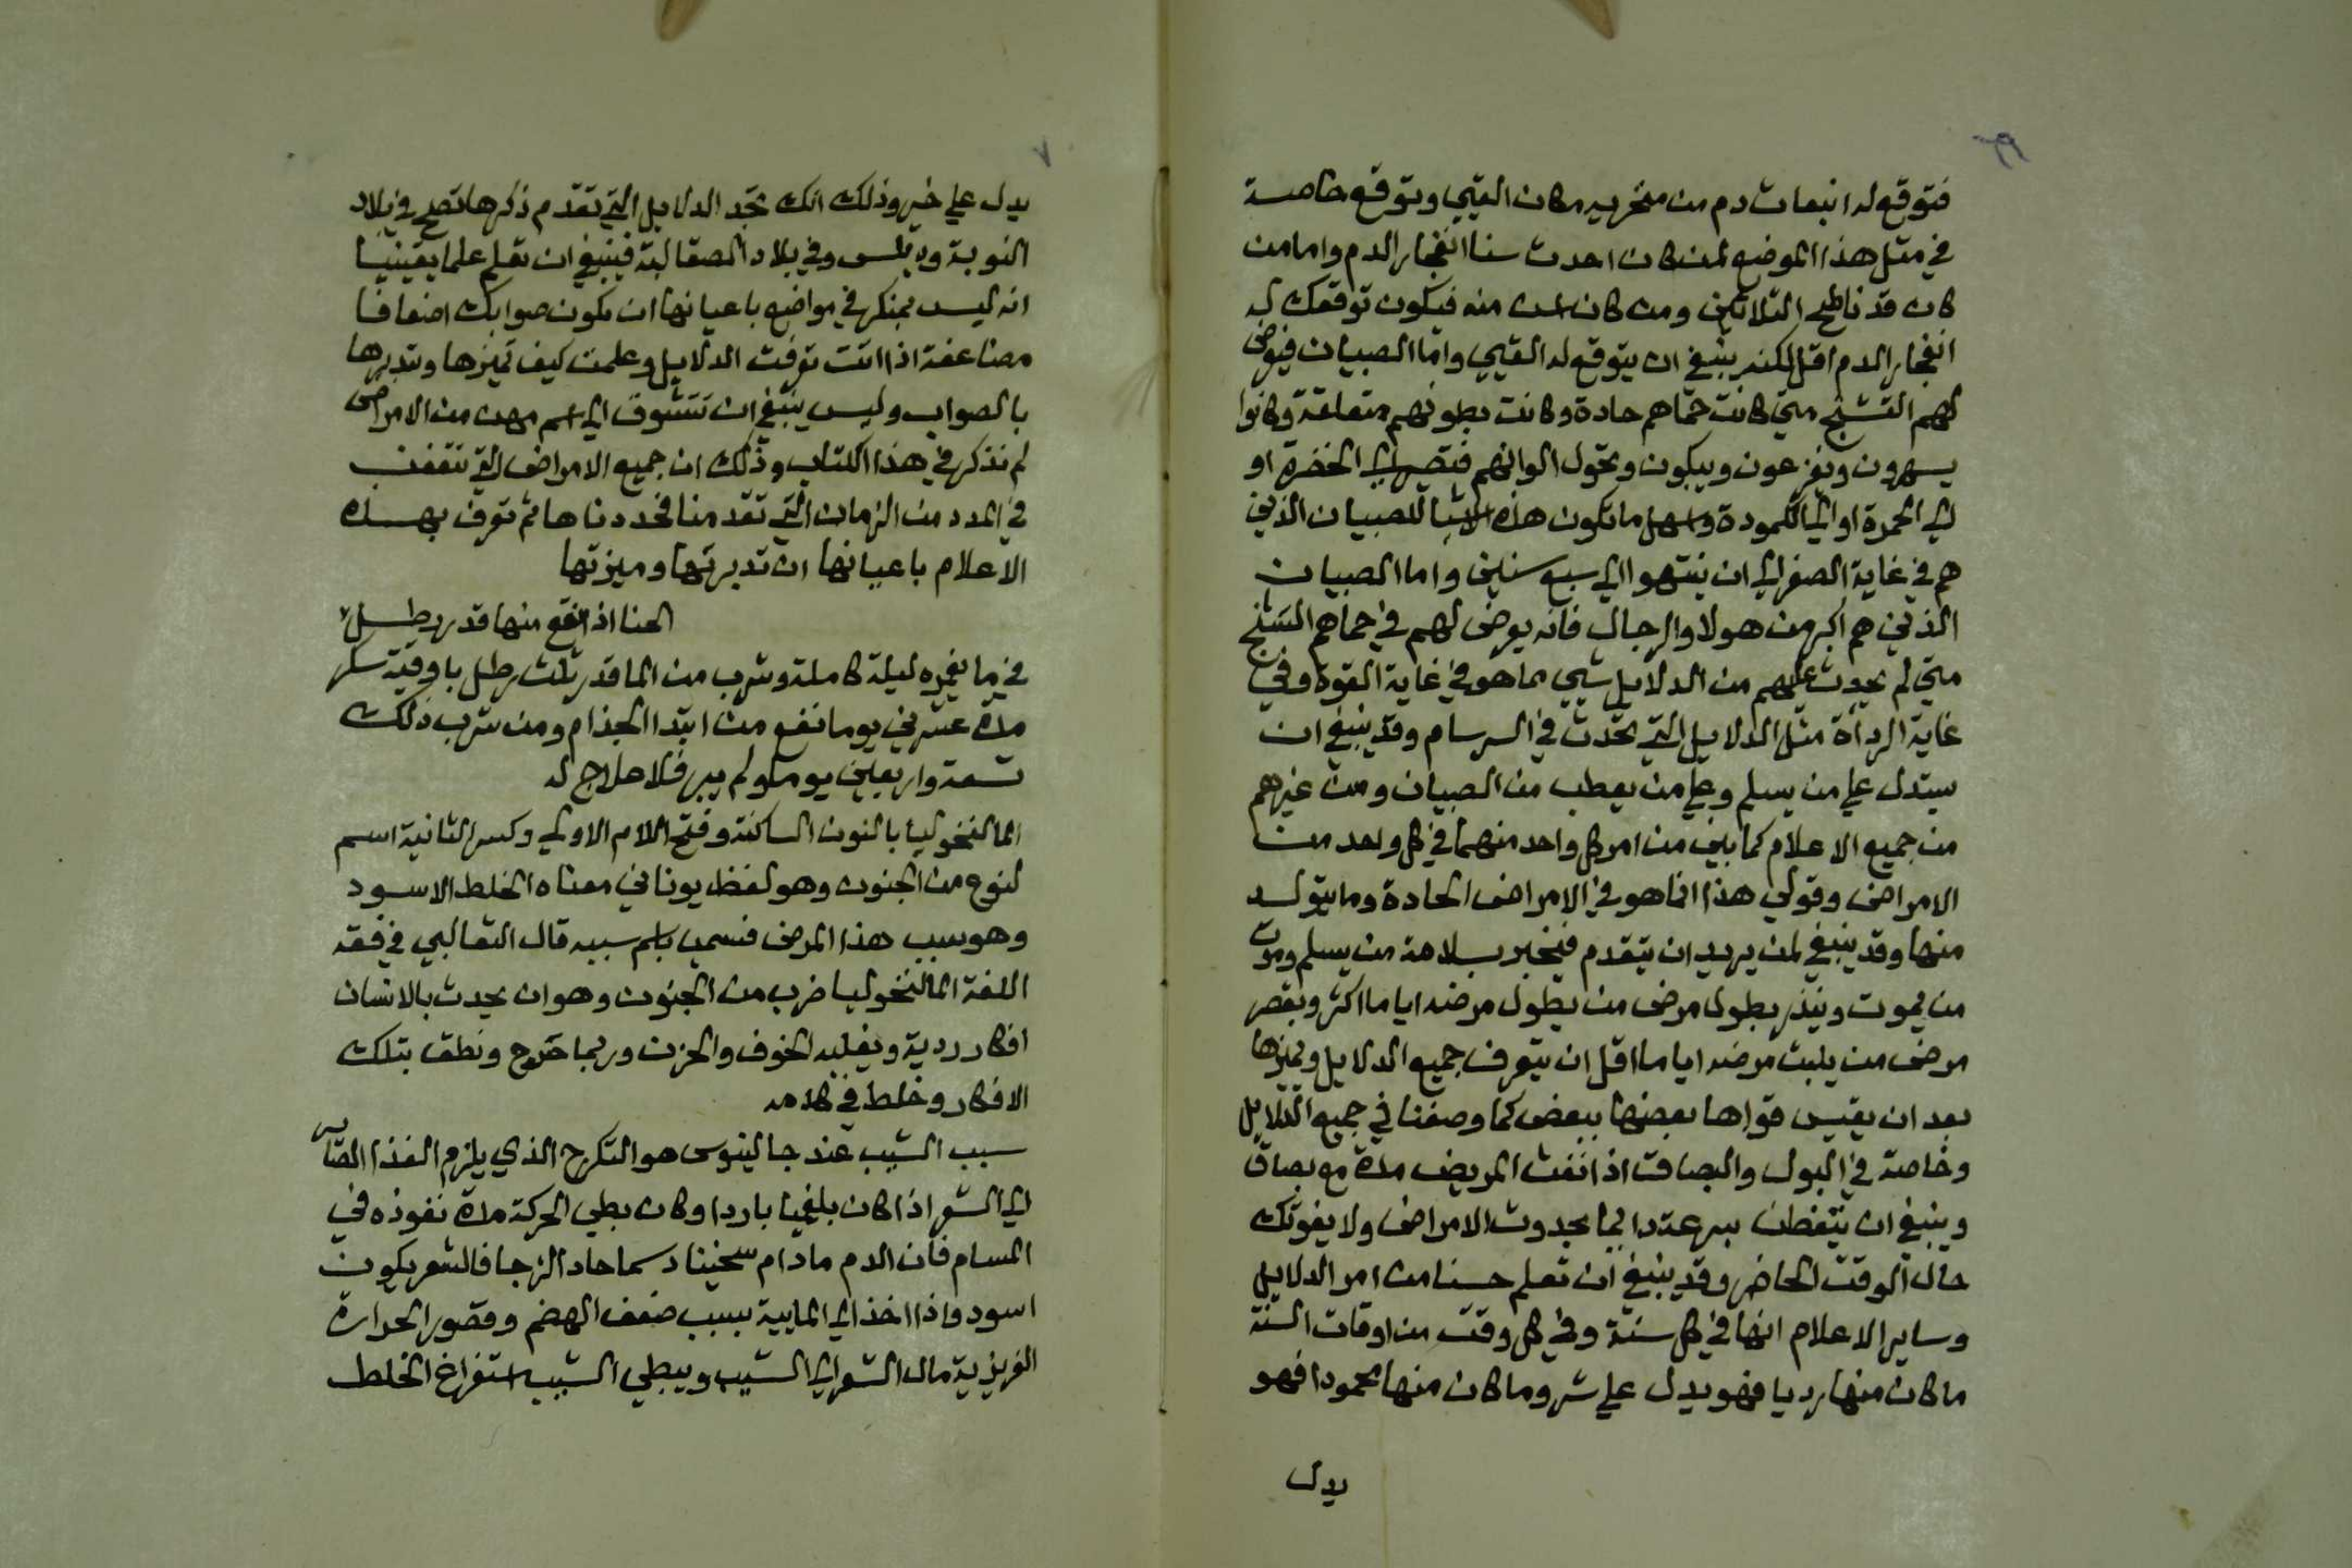 فتوقع له انبعاث دم من منخريه مكان القي وتوقع خاصة
في مثل هذا الموضع لمن كان احدث سنا انفجار الدم واما من
كان قد ناطح الثلاثين ومن كان اسن منه فيكون توقعك له
انفجار الدم اقل لكنه ينبغي ان يتوقع له القي واما الصبيان فيعرض
لهم التشنج متي كانت حماهم حادة وكانت بطونهم متعلقة وكانوا
يسهرون ويفزعون ويبكون وتحول الوانهم فتصير الي الخضرة او
الي الحمرة او الي الكمودة واسهل ما تكون هذه الاشيا للصبيان الذين
هم في غاية الصغر الي ان ينتهوا الي سبع سنين واما الصبيان
الذين هم اكبر من هولا والرجال فانه يعرض لهم في حماهم التشنج
متي لم يحدث عليهم من الدلايل شيي مما هو في غاية القوة وفي
غاية الرداة مثل الدلايل التي تحدث في السرسام وقد ينبغي ان
يستدل علي من يسلم وعلي من يعطب من الصبيان ومن غيرهم
من جميع الاعلام كما بين من امر كل واحد منهما في كل واحد من
الامراض وقولي هذا انما هو في الامراض الحادة وما يتولد
منها وقد ينبغي لمن يريد ان يتقدم فيخبر بسلامة من يسلم وموت
من يموت وينذر بطول مرض من يطول مرضه اياما اكثر وبقصر
مرض من يلبث مرضه اياما اقل ان يتعرف جميع الدلايل ويميزها
بعد ان يقيس قواها بعضها ببعض كما وصفنا في جميع الدلايل
وخاصة في البول والبصاق اذا نفث المريض مدة مع بصاق
وينبغي ان تتفطن بسرعة دايما بحدوث الامراض ولا يفوتك
حال الوقت الحاضر وقد ينبغي ان تعلم حسنا من امر الدلايل
وساير الاعلام انها في كل سنة وفي كل وقت من اوقات السنة
ما كان منها رديا فهو يدل علي شر وما كان منها محمودا فهو
يدل
٧
يدل علي خير وذلك انك تجد الدلايل التي تقدم ذكرها تصح في بلاد
النوبة وديلس وفي بلاد الصقالبة فينبغي ان تعلم علما يقينيا
انه ليس بمنكر في مواضع باعيانها ان يكون صوابك اضعافا
مضاعفة اذا انت تعرفت الدلايل وعلمت كيف تميزها وتدبرها
بالصواب وليس ينبغي ان تتشوف الي اسم مرض من الامراض
لم نذكره في هذا الكتاب وذلك ان جميع الامراض التي تنقضي
في المدد من الزمان التي تقدمنا فحددناها ثم تعرف بهذه
الاعلام باعيانها ان تدبرتها وميزتها
الحنا اذا نقع منها قدر رطل
في ما يغمره ليلة كاملة وشرب من الما قدر ثلث رطل باوقية سكر
مدة عشرين يوما نفع من ابتدا الجذام ومن شرب ذلك
تسعة واربعين يوما ولم يبر فلا علاج له
المالنخوليا بالنون الساكنة وفتح اللام الاولي وكسر الثانية اسم
لنوع من الجنون وهو لفظ يوناني معناه الخلط الاسود
وهو سبب هذا المرض فسمي باسم سببه قال الثعالبي في فقه
اللغة المالنخوليا ضرب من الجنون وهو ان يحدث بالانسان
افكار ردية ويغلبه الخوف والحزن وربما صرح ونطق بتلك
الافكار وخلط في كلامه
سبب الشيب عند جالينوس هو التكرج الذي يلزم الغذا الصاير
الي الشعر اذا كان بلغميا باردا وكان بطي الحركة مدة نفوذه في
المسام فان الدم ما دام سخينا دسما حاد الزجا فالشعر يكون
اسود واذا اخذ الي المايية بسبب ضعف الهضم وقصور الحرارة
الغريزية مال الشعر الي الشيب ويبطي الشيب استفراغ الخلط